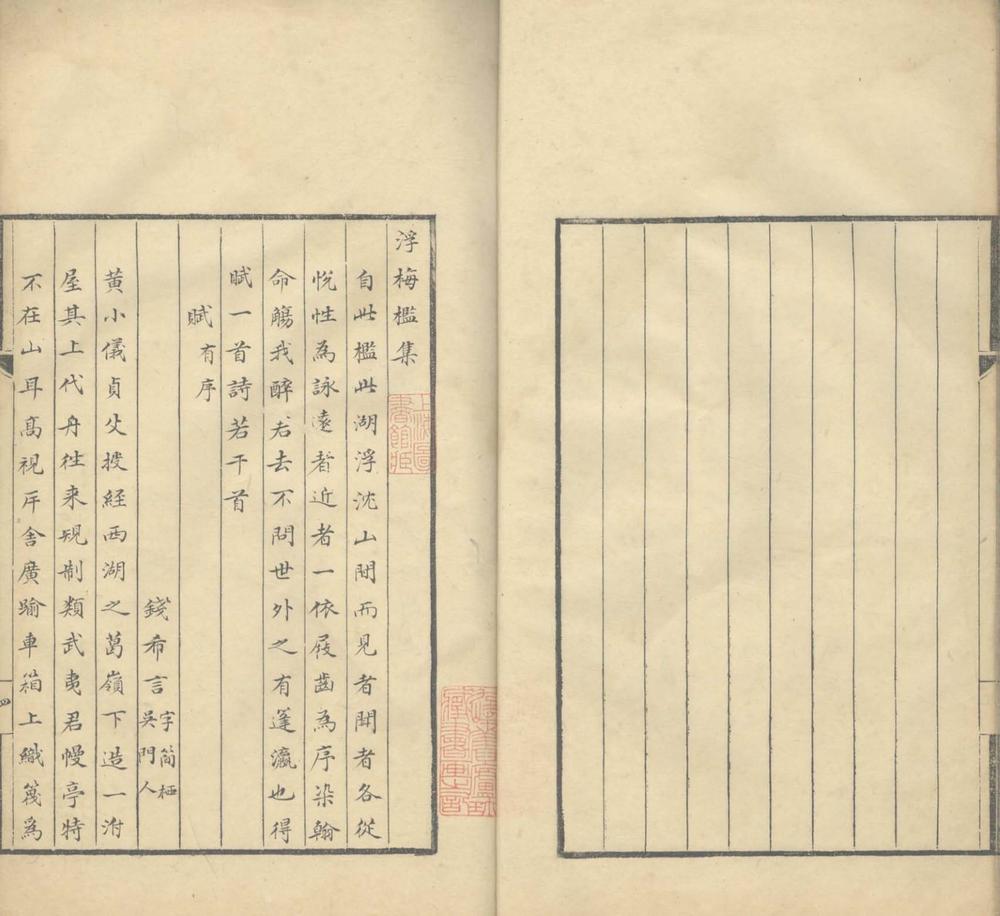 浮梅檻集
自此檻此湖浮沈山間而見者聞者各從
悅性為詠遠者近者一依屐齒為序染翰
命觴我醉若去不問世外之有蓬瀛也得
賦一首詩若干首
賦有序
錢希言字簡栖吳門人
黃小儀貞父授經西湖之葛嶺下造一泭
屋其上代舟徃来規制類武夷君幔亭特
不在山耳高視斥舍廣踰車箱上織篾為
四
上海圖書館藏